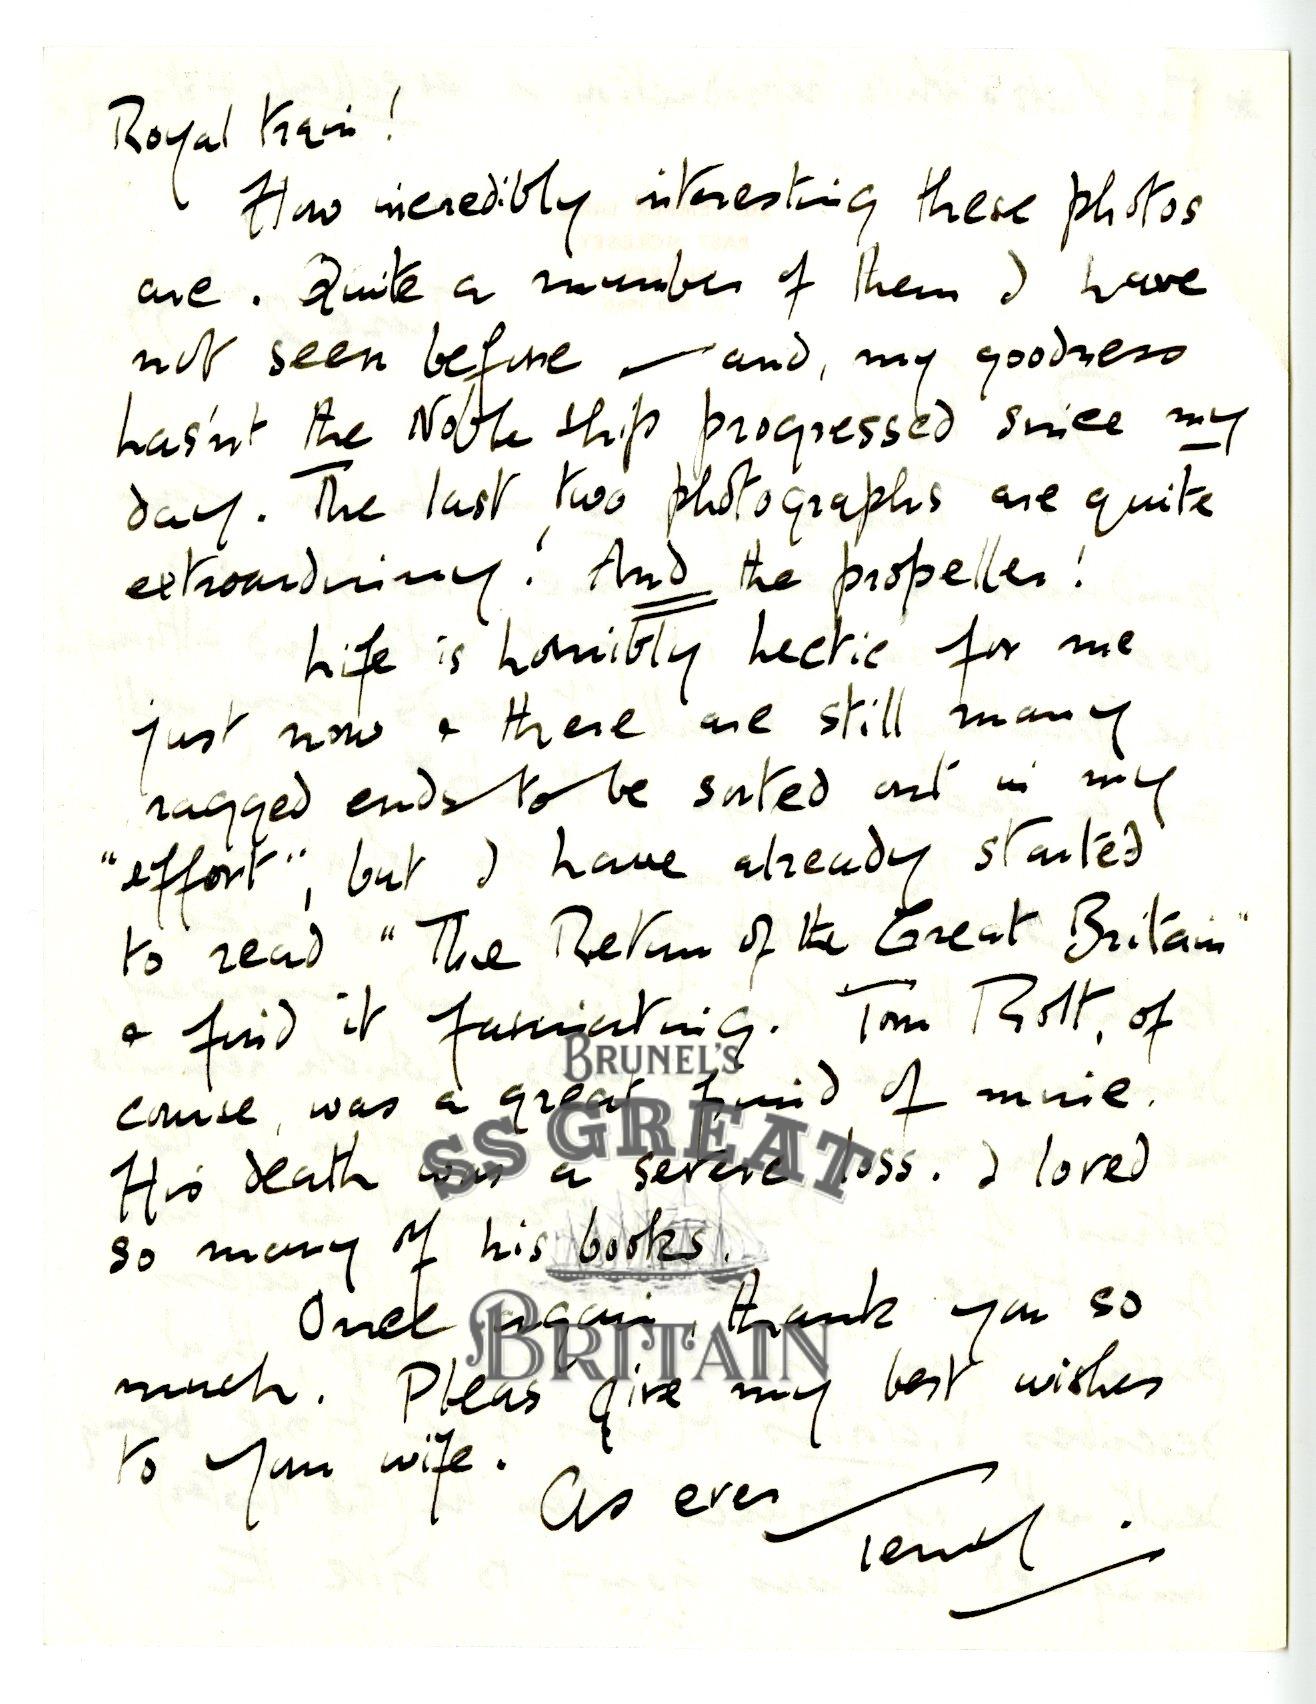 Royal train!
How incredibly interesting these photos
are. Quite a number of them I have
not seen before — and, my goodness
hasn't the Noble ship progressed since my
day. The last two photographs are quite
extroardininy! And the propeller!
Life is horribly hectic for me
just now & there are still many
ragged ends to be sorted out in my
"effort", but I have already started
to read "The Return of the Great Britain"
& find it fascinating. Tom Rolt, of
course, was a great friend of mine.
His death was a severe loss. I loved
so many of his books.
Once again, thank you so
much. Pleas give my best wishes
to your wife.
As ever
BRUNEL'S
SS GREAT
BRITAIN